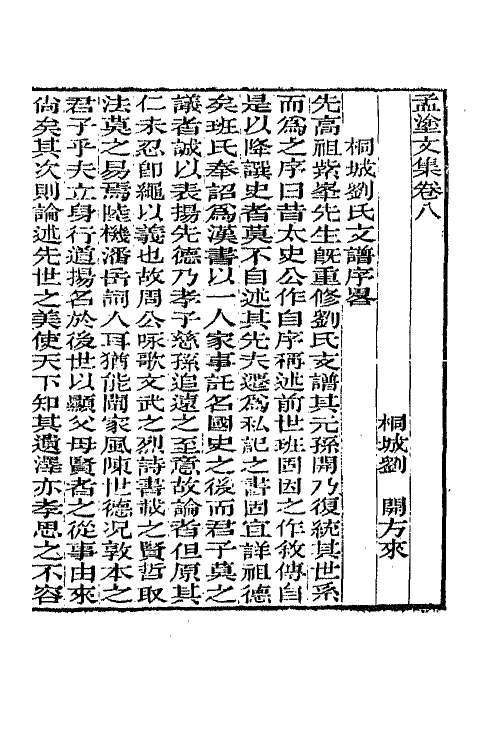 孟塗文集卷八
桐城劉　開方來
桐城劉氏支譜序畧
先高祖紫峯先生旣重修劉氏支譜其元孫開乃復統其世系
而爲之序曰昔太史公作自序稱述前世班固因之作敘傳自
是以降譔史者莫不自述其先夫遷爲私記之書固宜詳祖德
矣班氏奉詔爲漢書以一人家事託名國史之後而君子莫之
議者誠以表揚先德乃孝子慈孫追遠之至意故論者但原其
仁未忍卽繩以義也故周公咏歌文武之烈詩書載之賢哲取
法莫之易焉陸機潘岳詞人耳猶能闡家風陳世德况敦本之
君子乎夫立身行道揚名於後世以顯父母賢者之從事由來
尙矣其次則論述先世之美使天下知其遺澤亦孝思之不容